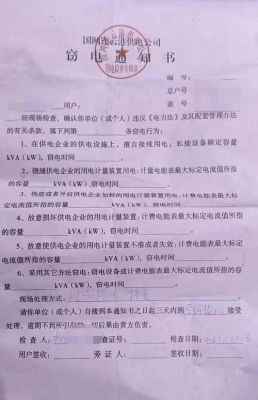 国网连云港供电公司
窃电通知书
编号：
总户号
用户： 表号
经现场检查，确认你单位（或个人）违反《电力法》及其配套管理办法
的有关条款，属下列第 条窃电行为：
1、在供电企业的供电设施上，擅自接线用电；私接设备额定容量
kVA（kW），窃电时间 。
2、绕越供电企业的用电计量装置用电；计量电能表最大标定电流值所指
的容量 kVA（kW），窃电时间 。
用电；计费电能表最大标定电流值所指
的容量 kVA（kW），窃电时间 。
4、故意损坏供电企业的用电计量装置；计费电能表最大标定电流值所指
的容量 kVA（kW），窃电时间 。
5、故意使供电企业的用电计量装置不准或者失效；计费电能表最大标定
电流值所指的容量 kVA（kW），窃电时间 。
6、采用其它方法窃电：窃电设备或计费电能表最大标定电流值所指的容
量 kVA（kW），窃电时间 。
现场处理方式：
请你单位（或个人）自接到本通知书之日起三天内到 接受
处理，逾期不到所引起的一切后果由贵方负责。
检查人： 检查证号： 检查日期：
用户签收： 旁证人： 签收日期：